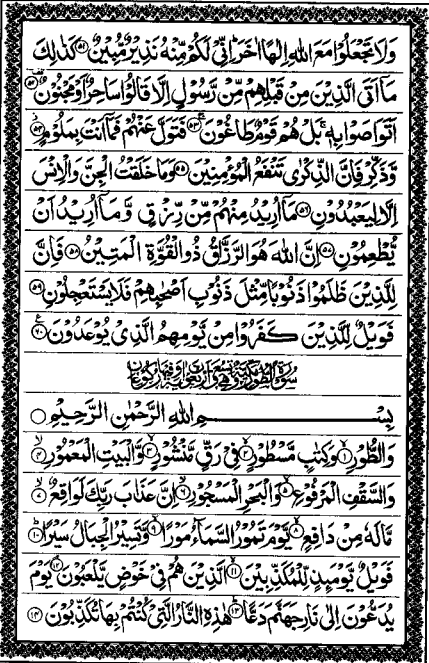 وَلَا تَجْعَلُوْا مَعَ اللّٰهِ اِلٰهًا اٰخَرَ ؕ اِنِّیْ لَكُمْ مِّنْهُ نَذِیْرٌ مُّبِیْنٌ ۵۱ كَذٰلِكَ
مَاۤ اَتَی الَّذِیْنَ مِنْ قَبْلِهِمْ مِّنْ رَّسُوْلٍ اِلَّا قَالُوْا سَاحِرٌ اَوْ مَجْنُوْنٌ ۵۲
اَتَوَاصَوْا بِهٖ ۚ بَلْ هُمْ قَوْمٌ طَاغُوْنَ ۵۳ فَتَوَلَّ عَنْهُمْ فَمَاۤ اَنْتَ بِمَلُوْمٍ ۵۴
وَّذَكِّرْ فَاِنَّ الذِّكْرٰی تَنْفَعُ الْمُؤْمِنِیْنَ ۵۵ وَمَا خَلَقْتُ الْجِنَّ وَالْاِنْسَ
اِلَّا لِیَعْبُدُوْنِ ۵۶ مَاۤ اُرِیْدُ مِنْهُمْ مِّنْ رِّزْقٍ وَّمَاۤ اُرِیْدُ اَنْ
یُّطْعِمُوْنِ ۵۷ اِنَّ اللّٰهَ هُوَ الرَّزَّاقُ ذُو الْقُوَّةِ الْمَتِیْنُ ۵۸ فَاِنَّ
لِلَّذِیْنَ ظَلَمُوْا ذَنُوْبًا مِّثْلَ ذَنُوْبِ اَصْحٰبِهِمْ فَلَا یَسْتَعْجِلُوْنِ ۵۹
فَوَیْلٌ لِّلَّذِیْنَ كَفَرُوْا مِنْ یَّوْمِهِمُ الَّذِیْ یُوْعَدُوْنَ ۶۰
سُوْرَةُ الطُّوْرِ مَكِّیَّةٌ وَّهِیَ تِسْعٌ وَّاَرْبَعُوْنَ اٰیَةً وَّفِیْهَا رُكُوْعَانِ
بِسْمِ اللّٰهِ الرَّحْمٰنِ الرَّحِیْمِ
وَالطُّوْرِ ۱ وَكِتٰبٍ مَّسْطُوْرٍ ۲ فِیْ رَقٍّ مَّنْشُوْرٍ ۳ وَّالْبَیْتِ الْمَعْمُوْرِ ۴
وَالسَّقْفِ الْمَرْفُوْعِ ۵ وَالْبَحْرِ الْمَسْجُوْرِ ۶ اِنَّ عَذَابَ رَبِّكَ لَوَاقِعٌ ۷
مَّا لَهٗ مِنْ دَافِعٍ ۸ یَّوْمَ تَمُوْرُ السَّمَآءُ مَوْرًا ۹ وَّتَسِیْرُ الْجِبَالُ سَیْرًا ۱۰
فَوَیْلٌ یَّوْمَىِٕذٍ لِّلْمُكَذِّبِیْنَ ۱۱ الَّذِیْنَ هُمْ فِیْ خَوْضٍ یَّلْعَبُوْنَ ۱۲ یَوْمَ
یُدَعُّوْنَ اِلٰی نَارِ جَهَنَّمَ دَعًّا ۱۳ هٰذِهِ النَّارُ الَّتِیْ كُنْتُمْ بِهَا تُكَذِّبُوْنَ ۱۴